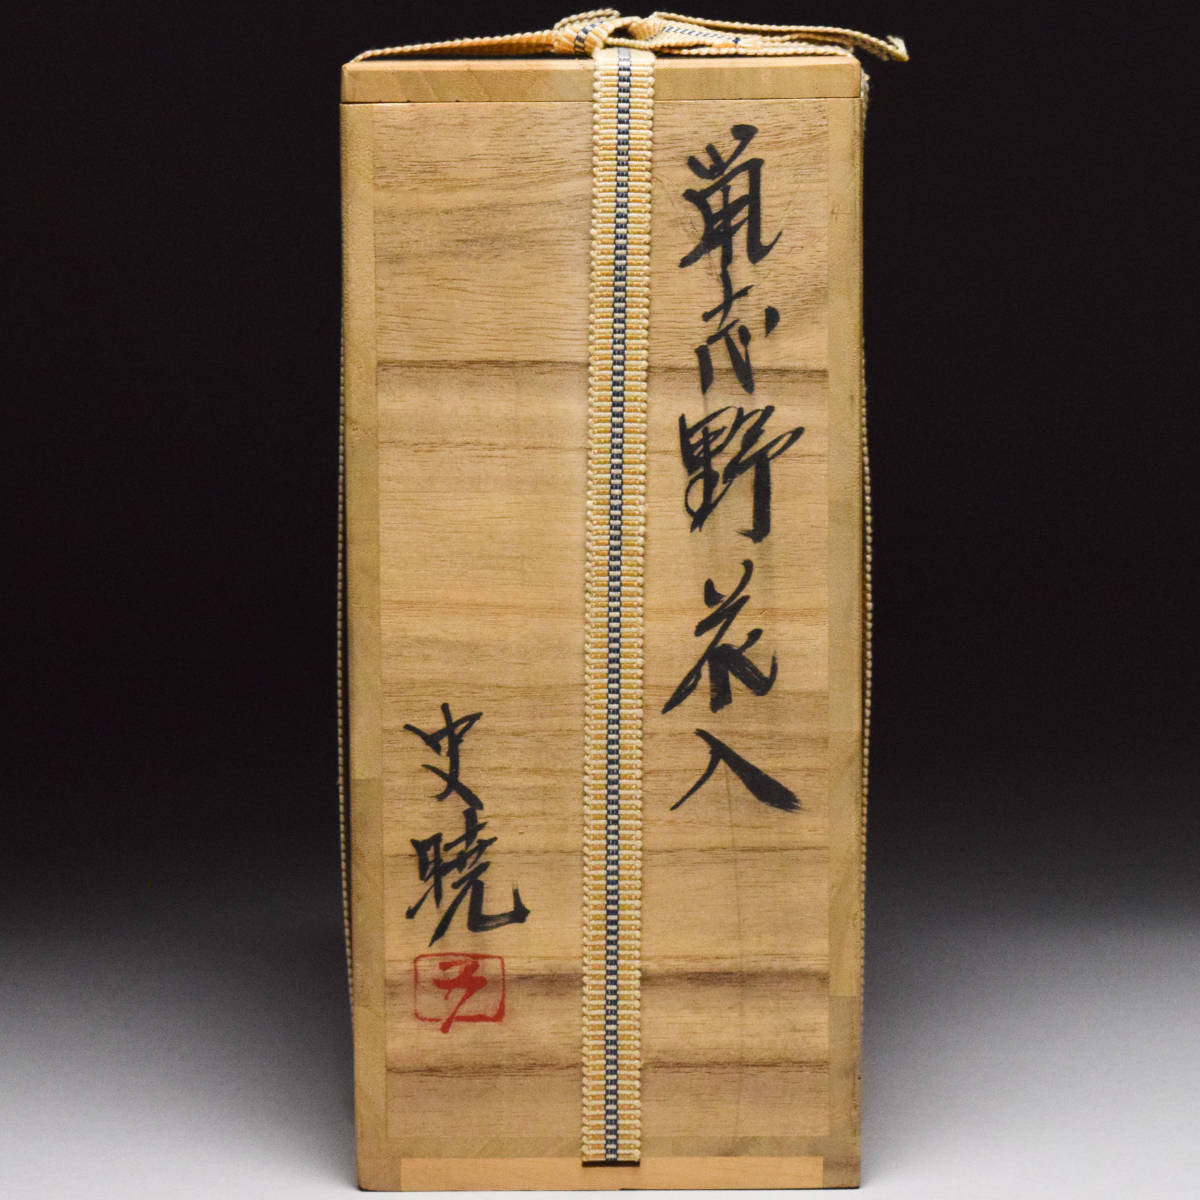 鼡志野花入
史暁